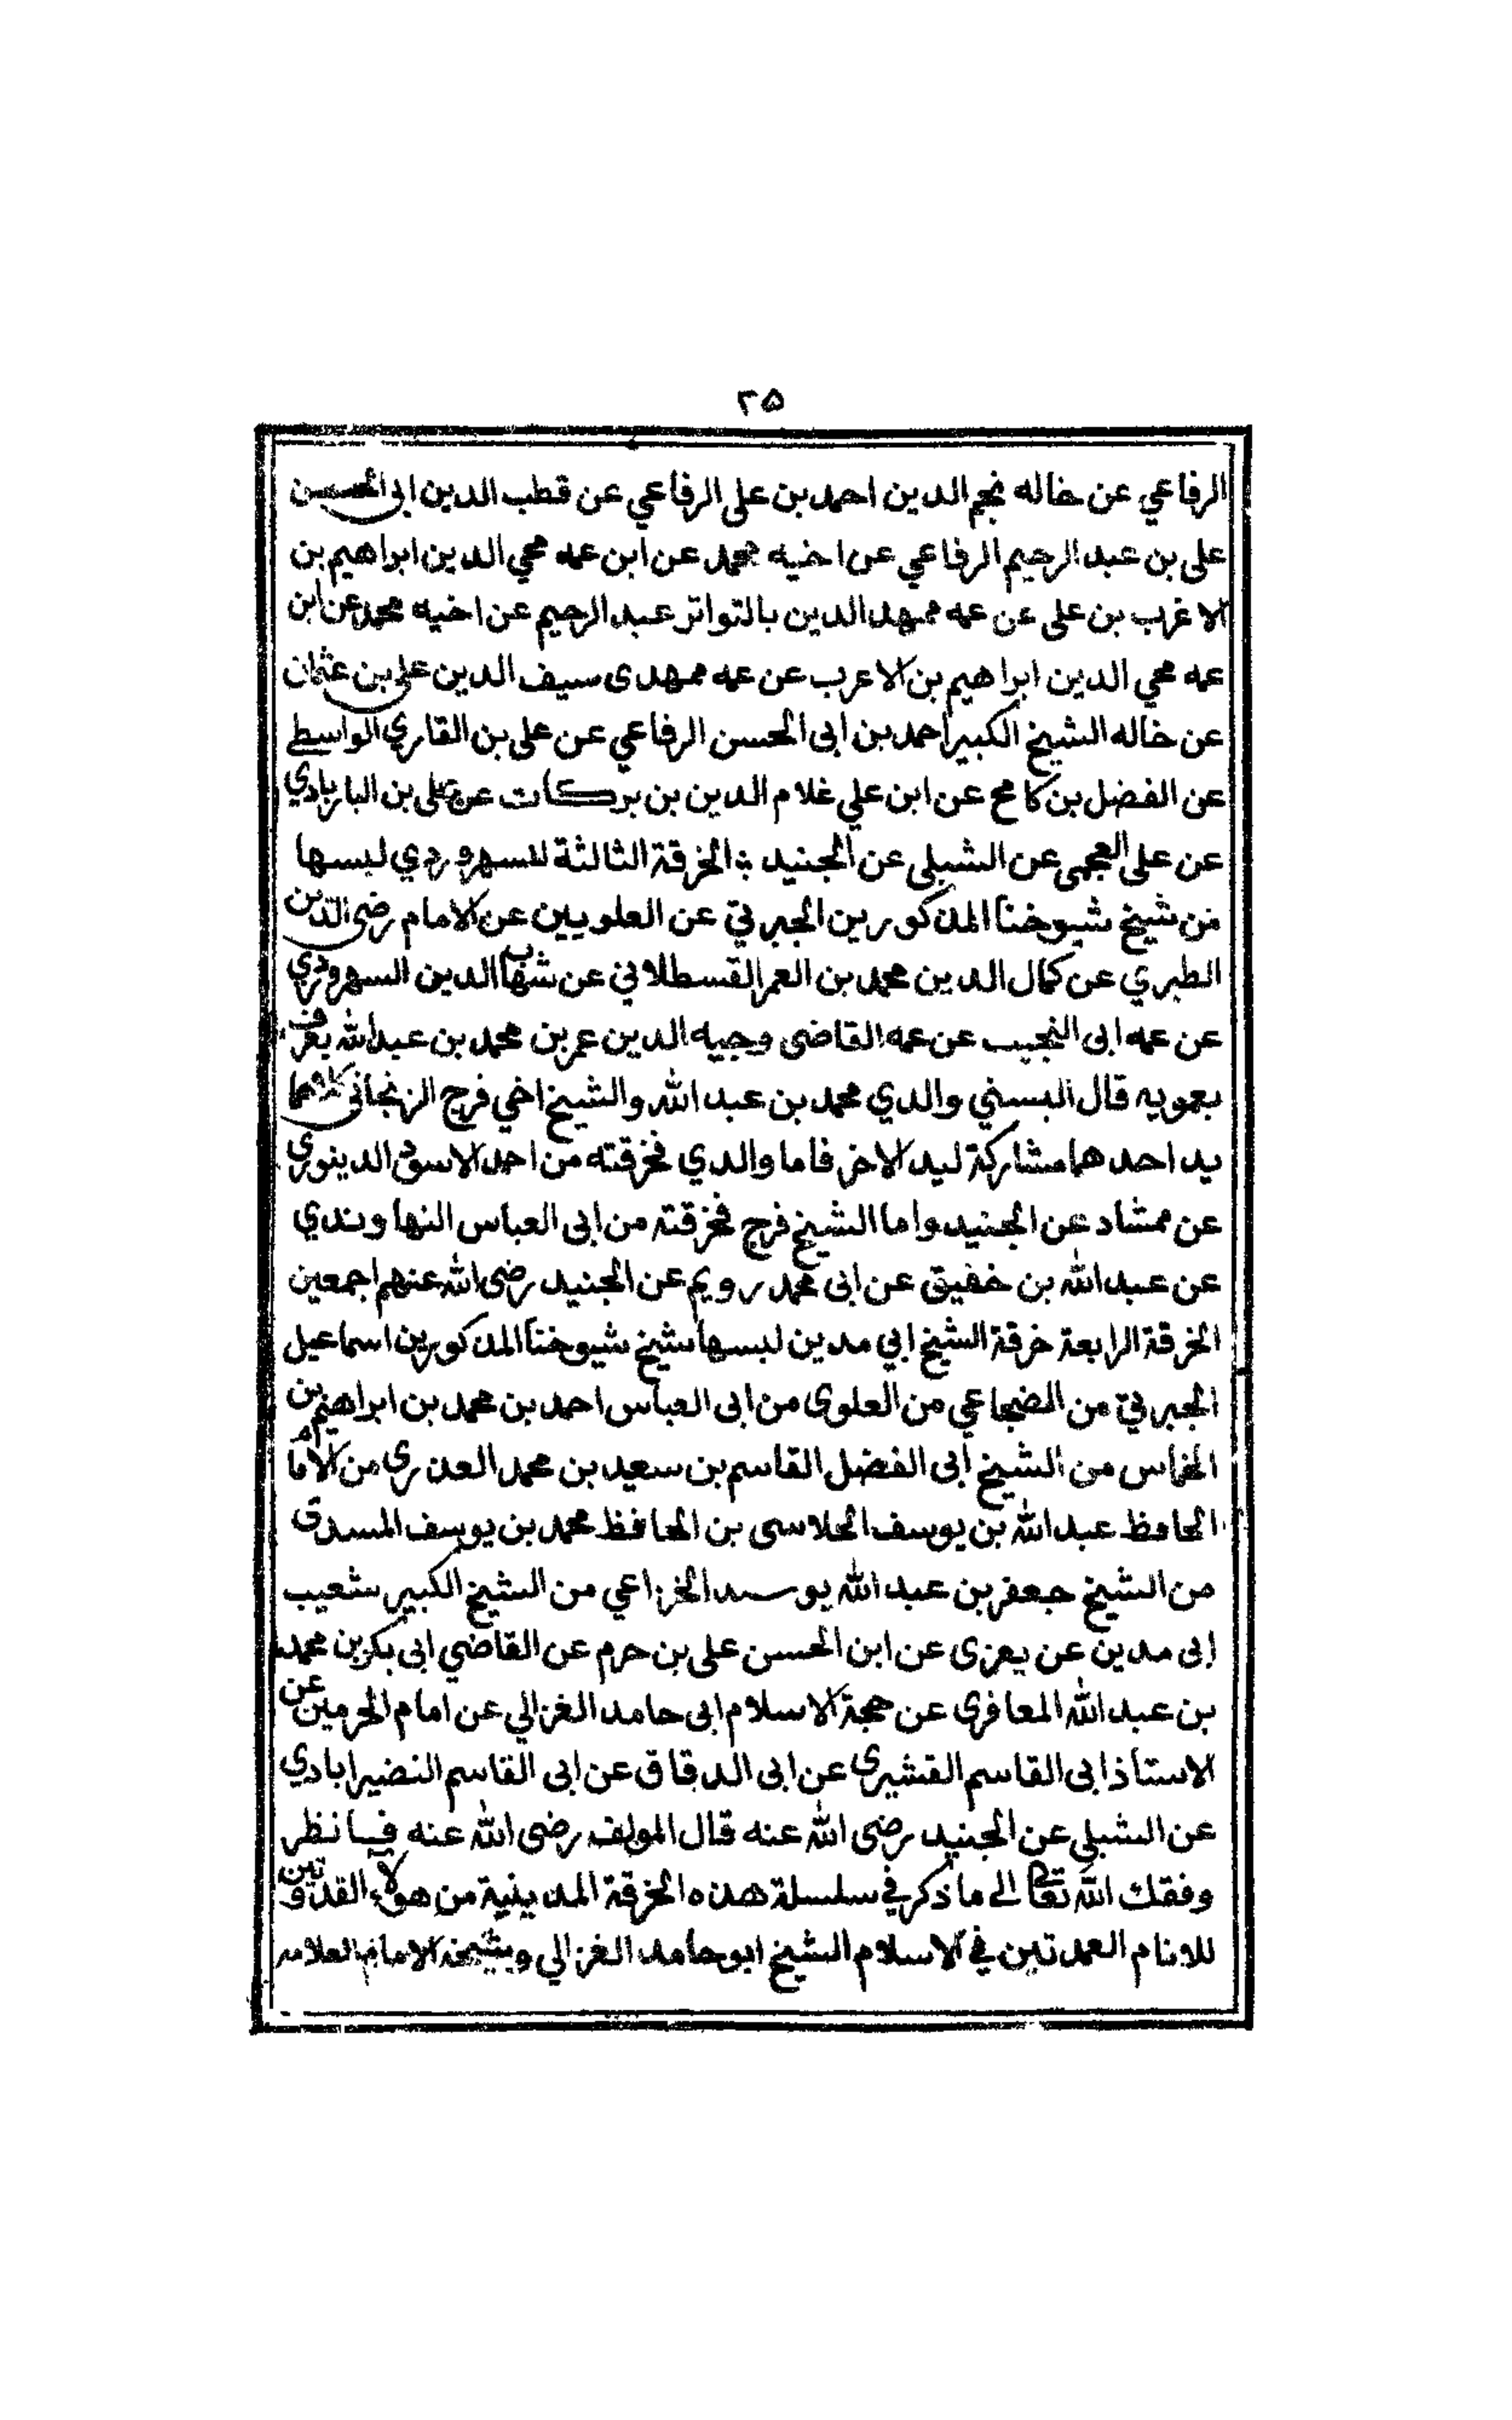 ٢٥
الرفاعي عن خاله نجم الدين احمد بن على الرفاعي عن قطب الدين ابى الحسن
على بن عبد الرحيم الرفاعي عن اخيه محمد عن ابن عمه محي الدين ابراهيم بن
الاغرب بن على عن عمه ممهد الدين بالتواتر عبد الرحيم عن اخيه محمد عن ابن
عمه محي الدين ابراهيم بن الاعرب عن عمه ممهدى سيف الدين على بن عثمان
عن خاله الشيخ الكبير احمد بن ابى الحسن الرفاعي عن على بن القاري الواسطي
عن الفضل بن كامح عن ابن علي غلام الدين بن بركات عن على بن البازيادي
عن على العجمى عن الشبلى عن الجنيد ؛ الخرقة الثالثة للسهروردي لبسها
من شيخ شيوخنا المذكورين الجبرتي عن العلويين عن الامام رضى الدين
الطبري عن كمال الدين محمد بن العمر القسطلاني عن شهاب الدين السهروردي
عن عمه ابى النجيب عن عمه القاضى وجيه الدين عمر بن محمد بن عبد الله يعرف
بعمويه قال البسني والدي محمد بن عبد الله والشيخ اخي فرج الزنجاني كلاهما
يد احدهما مشاركة ليد الاخر فاما والدي فخرقته من احمد الاسود الدينورى
عن ممشاد عن الجنيد واما الشيخ فرج فخرقته من ابى العباس النهاوندي
عن عبد الله بن خفيق عن ابى محمد رويم عن الجنيد رضى الله عنهم اجمعين
الخرقة الرابعة خرقة الشيخ ابي مدين لبسها شيخ شيوخنا المذكورين اسماعيل
الجبرتي من الضجاعي من العلوى من ابى العباس احمد بن محمد بن ابراهيم بن
الخاس من الشيخ ابى الفضل القاسم بن سعيد بن محمد العذري من الامام
الحافظ عبد الله بن يوسف الحلاسى بن الحافظ محمد بن يوسف المسدى
من الشيخ جعفر بن عبد الله الخزاعي من الشيخ الكبير شعيب
ابى مدين عن يعزى عن ابن الحسن على بن حرم عن القاضي ابى بكر بن محمد
بن عبد الله المعافرى عن حجة الاسلام ابى حامد الغزالي عن امام الحرمين عن
الاستاذ ابى القاسم القشيرى عن ابى الدقاق عن ابى القاسم النضيرابادي
عن الشبلي عن الجنيد رضى الله عنه قال المولف رضى الله عنه فيا نظر
وفقك الله تعالى الى ما ذكر في سلسلة هذه الخرقة المدينية من هولاء القدوتين
للانام العمدتين في الاسلام الشيخ ابو حامد الغزالي وشيخه الامام العلامه